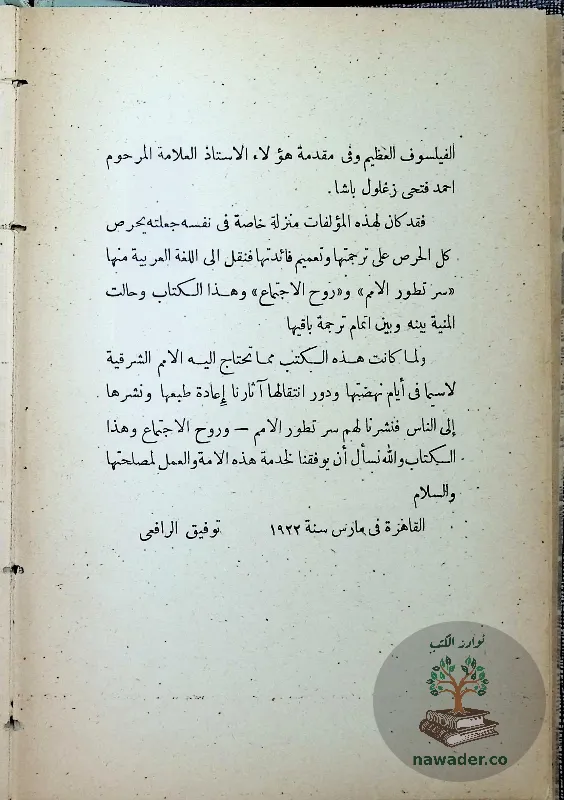 الفيلسوف العظيم وفى مقدمة هؤلاء الاستاذ العلامة المرحوم
احمد فتحى زغلول باشا.
فقد كان لهذه المؤلفات منزلة خاصة فى نفسه جعلته يحرص
كل الحرص على ترجمتها وتعميم فائدتها فنقل الى اللغة العربية منها
«سر تطور الامم» و«روح الاجتماع» وهذا الكتاب وحالت
المنية بينه وبين اتمام ترجمة باقيها
ولما كانت هذه الكتب مما تحتاج اليه الامم الشرقية
لاسيما فى أيام نهضتها ودور انتقالها آثارنا إعادة طبعها ونشرها
إلى الناس فنشرنا لهم سر تطور الامم — وروح الاجتماع وهذا
الكتاب والله نسأل أن يوفقنا لخدمة هذه الامة والعمل لمصلحتها
والسلام
القاهرة فى مارس سنة ١٩٢٢ توفيق الرافعى
نوادر الكتب
nawader.co